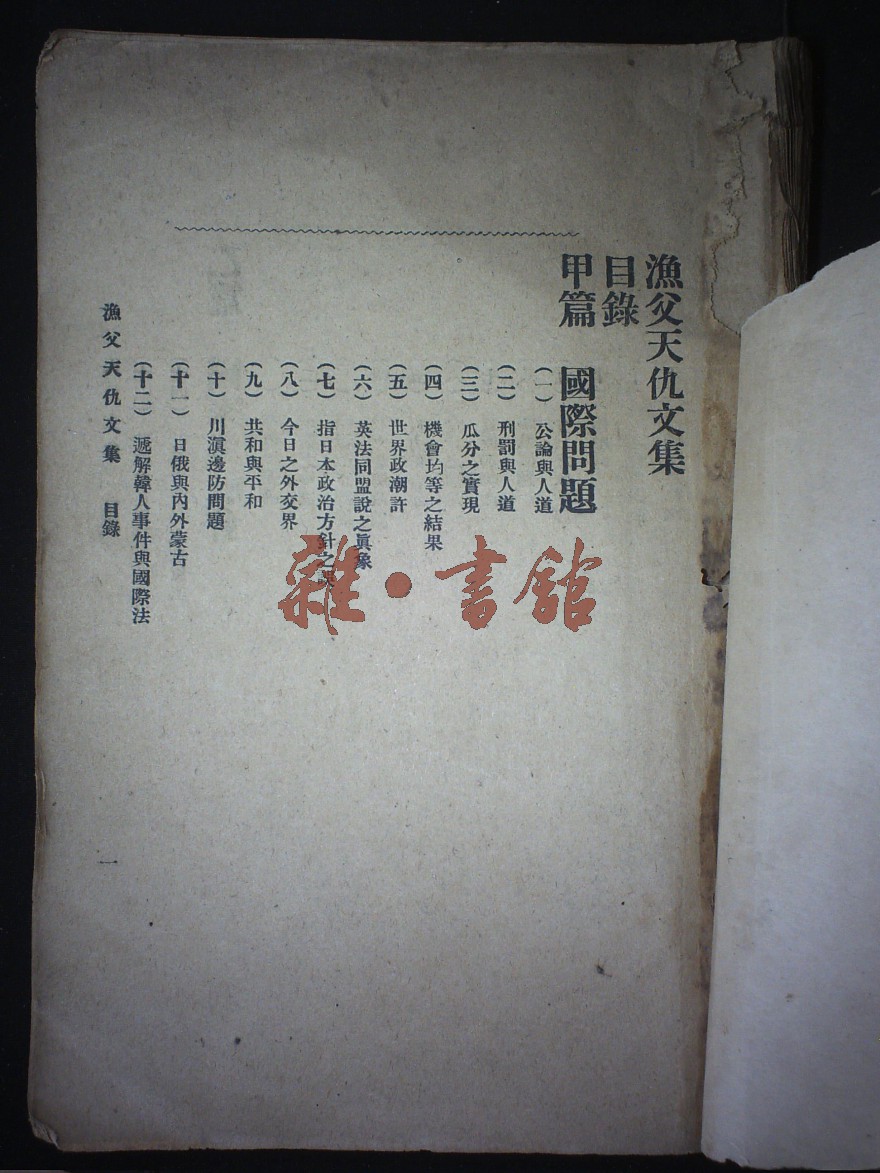 漁父天仇文集
目錄
甲篇　國際問題
（一）　公論與人道
（二）　刑罰與人道
（三）　瓜分之實現
（四）　機會均等之結果
（五）　世界政潮許
（六）　英法同盟說之眞象
（七）　指日本政治方針之
（八）　今日之外交界
（九）　共和與平和
（十）　川滇邊防問題
（十一）　日俄與內外蒙古
（十二）　遞解韓人事件與國際法
漁父天仇文集　目錄
一
雜·書館